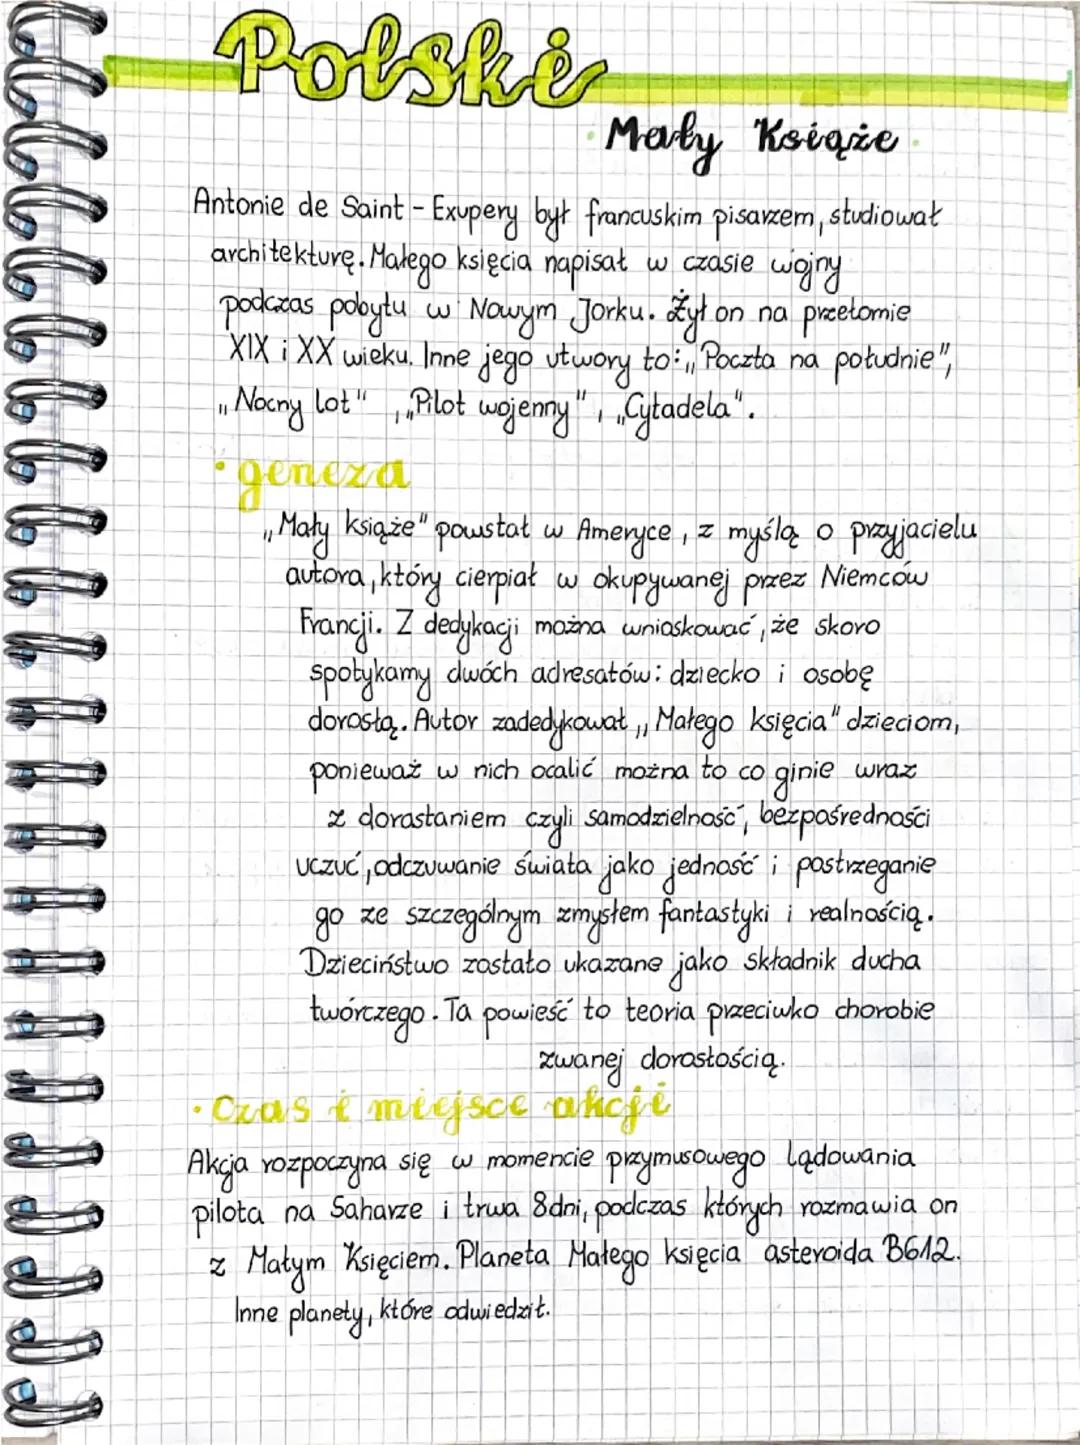 Polski
Mały Książe
Antonie de Saint - Exupery był francuskim pisarzem, studiował
architekturę. Małego księcia napisał w czasie wojny
podczas pobytu w Nowym Jorku. Żył on na przełomie
XIX i XX wieku. Inne jego utwory to: „Poczta na południe",
„Nocny lot", „Pilot wojenny", „Cytadela".
• geneza
„Mały książe" powstał w Ameryce, z myślą o przyjacielu
autora, który cierpiał w okupywanej przez Niemców
Francji. Z dedykacji można wnioskować, że skoro
spotykamy dwóch adresatów: dziecko i osobę
dorosłą. Autor zadedykował „Małego księcia" dzieciom,
ponieważ w nich ocalić można to co ginie wraz
z dorastaniem czyli samodzielność, bezpośredności
uczuć, odczuwanie świata jako jedność i postrzeganie
go ze szczególnym zmysłem fantastyki i realnością.
Dzieciństwo zostało ukazane jako składnik ducha
twórczego. Ta powieść to teoria przeciwko chorobie
zwanej dorosłością.
• Czas i miejsce akcji
Akcja rozpoczyna się w momencie przymusowego lądowania
pilota na Saharze i trwa 8dni, podczas których rozmawia on
z Małym Księciem. Planeta Małego księcia asteroida B612.
Inne planety, które odwiedził.